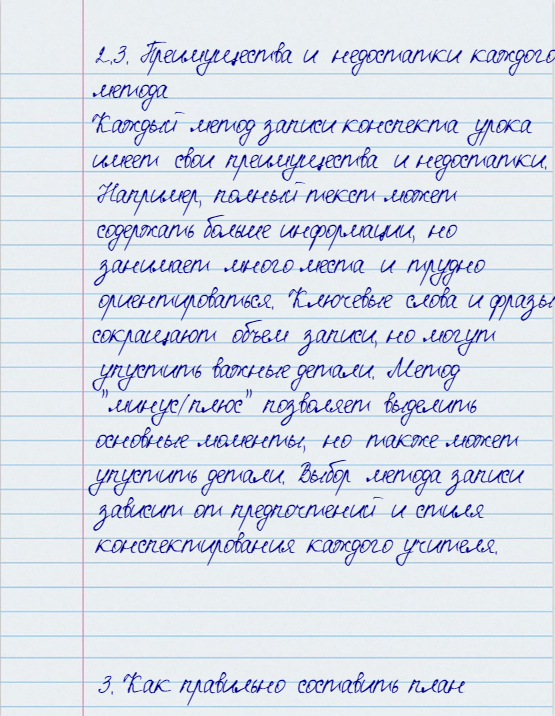 2.3. Преимущества и недостатки каждого
метода
Каждый метод записи конспекта урока
имеет свои преимущества и недостатки.
Например, полный текст может
содержать больше информации, но
занимает много места и трудно
ориентироваться. Ключевые слова и фразы
сокращают объем записи, но могут
упустить важные детали. Метод
"минус/плюс" позволяет выделить
основные моменты, но также может
упустить детали. Выбор метода записи
зависит от предпочтений и стиля
конспектирования каждого учителя.
3. Как правильно составить план